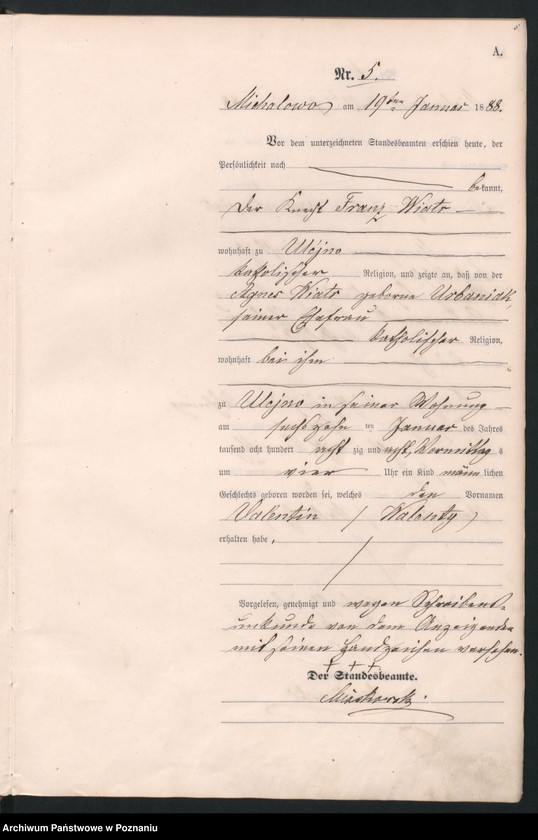 A.
Nr. 5.
Michalowo am 19ten Januar 1888.
Vor dem unterzeichneten Standesbeamten erschien heute, der
Persönlichkeit nach
bekannt,
Der Knecht Franz Wiatr
wohnhaft zu Ulejno
katholischer Religion, und zeigte an, daß von der
Agnes Wiatr geborne Urbaniak,
seiner Ehefrau
katholischer Religion,
wohnhaft bei ihm
zu Ulejno in seiner Wohnung
am sechszehn ten Januar des Jahres
tausend acht hundert acht zig und acht, Vormittag s
um vier Uhr ein Kind männ lichen
Geschlechts geboren worden sei, welches den Vornamen
Valentin (Walenty)
erhalten habe,
Vorgelesen, genehmigt und wegen Schreibens-
unkunde von dem Anzeigenden
mit seinen Handzeichen versehen.
+ + +
Der Standesbeamte.
Archiwum Państwowe w Poznaniu